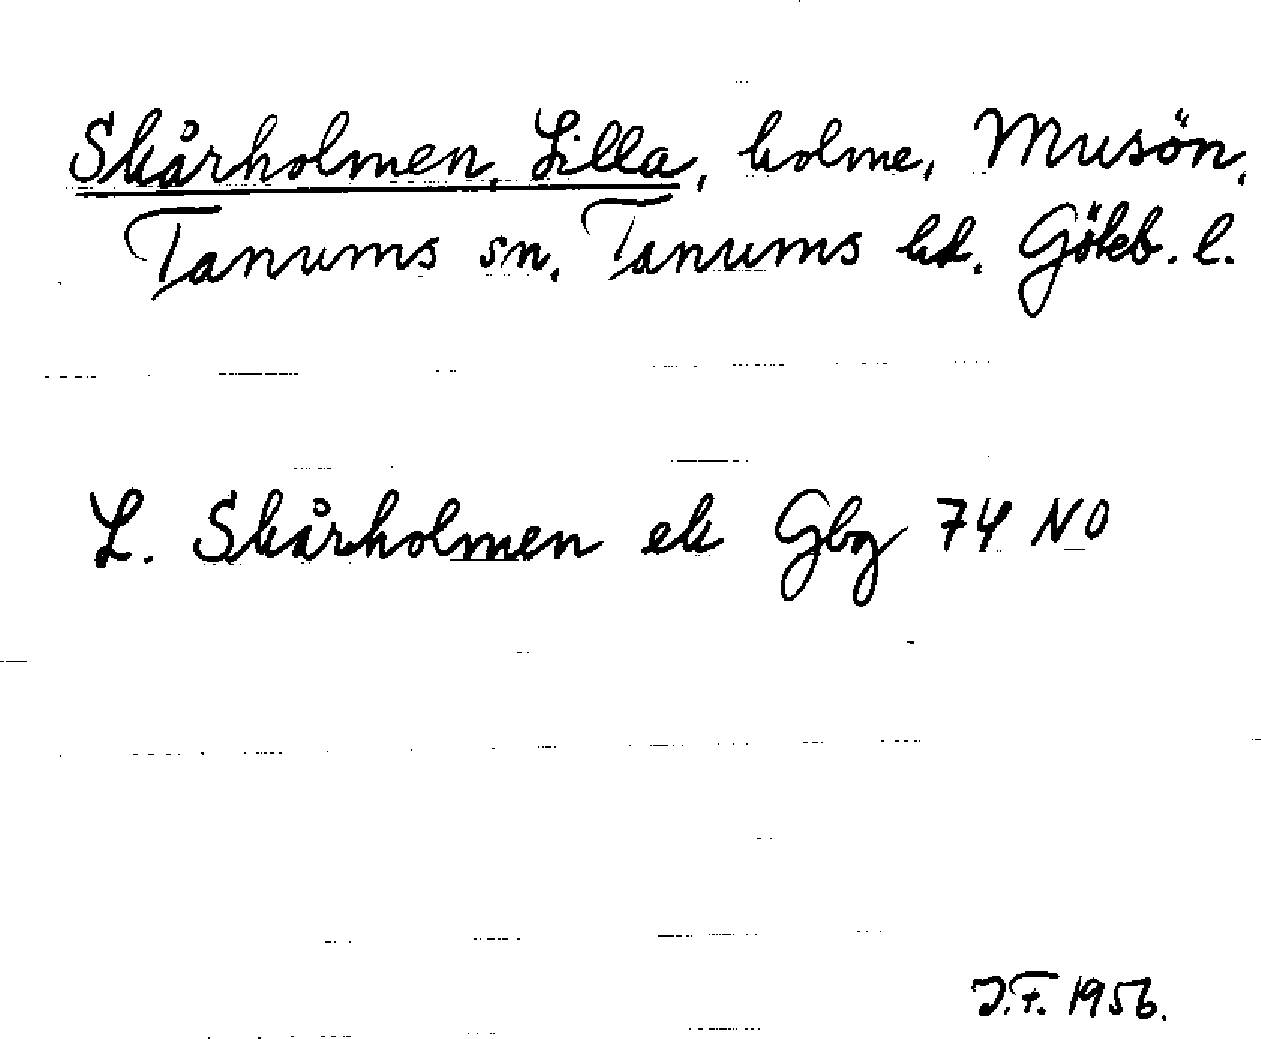 Skårholmen, Lilla, holme, Musön,
Tanums sn, Tanums hd. Göteb. l.
L. Skårholmen ek Gbg 74 NO
J.F. 1956.